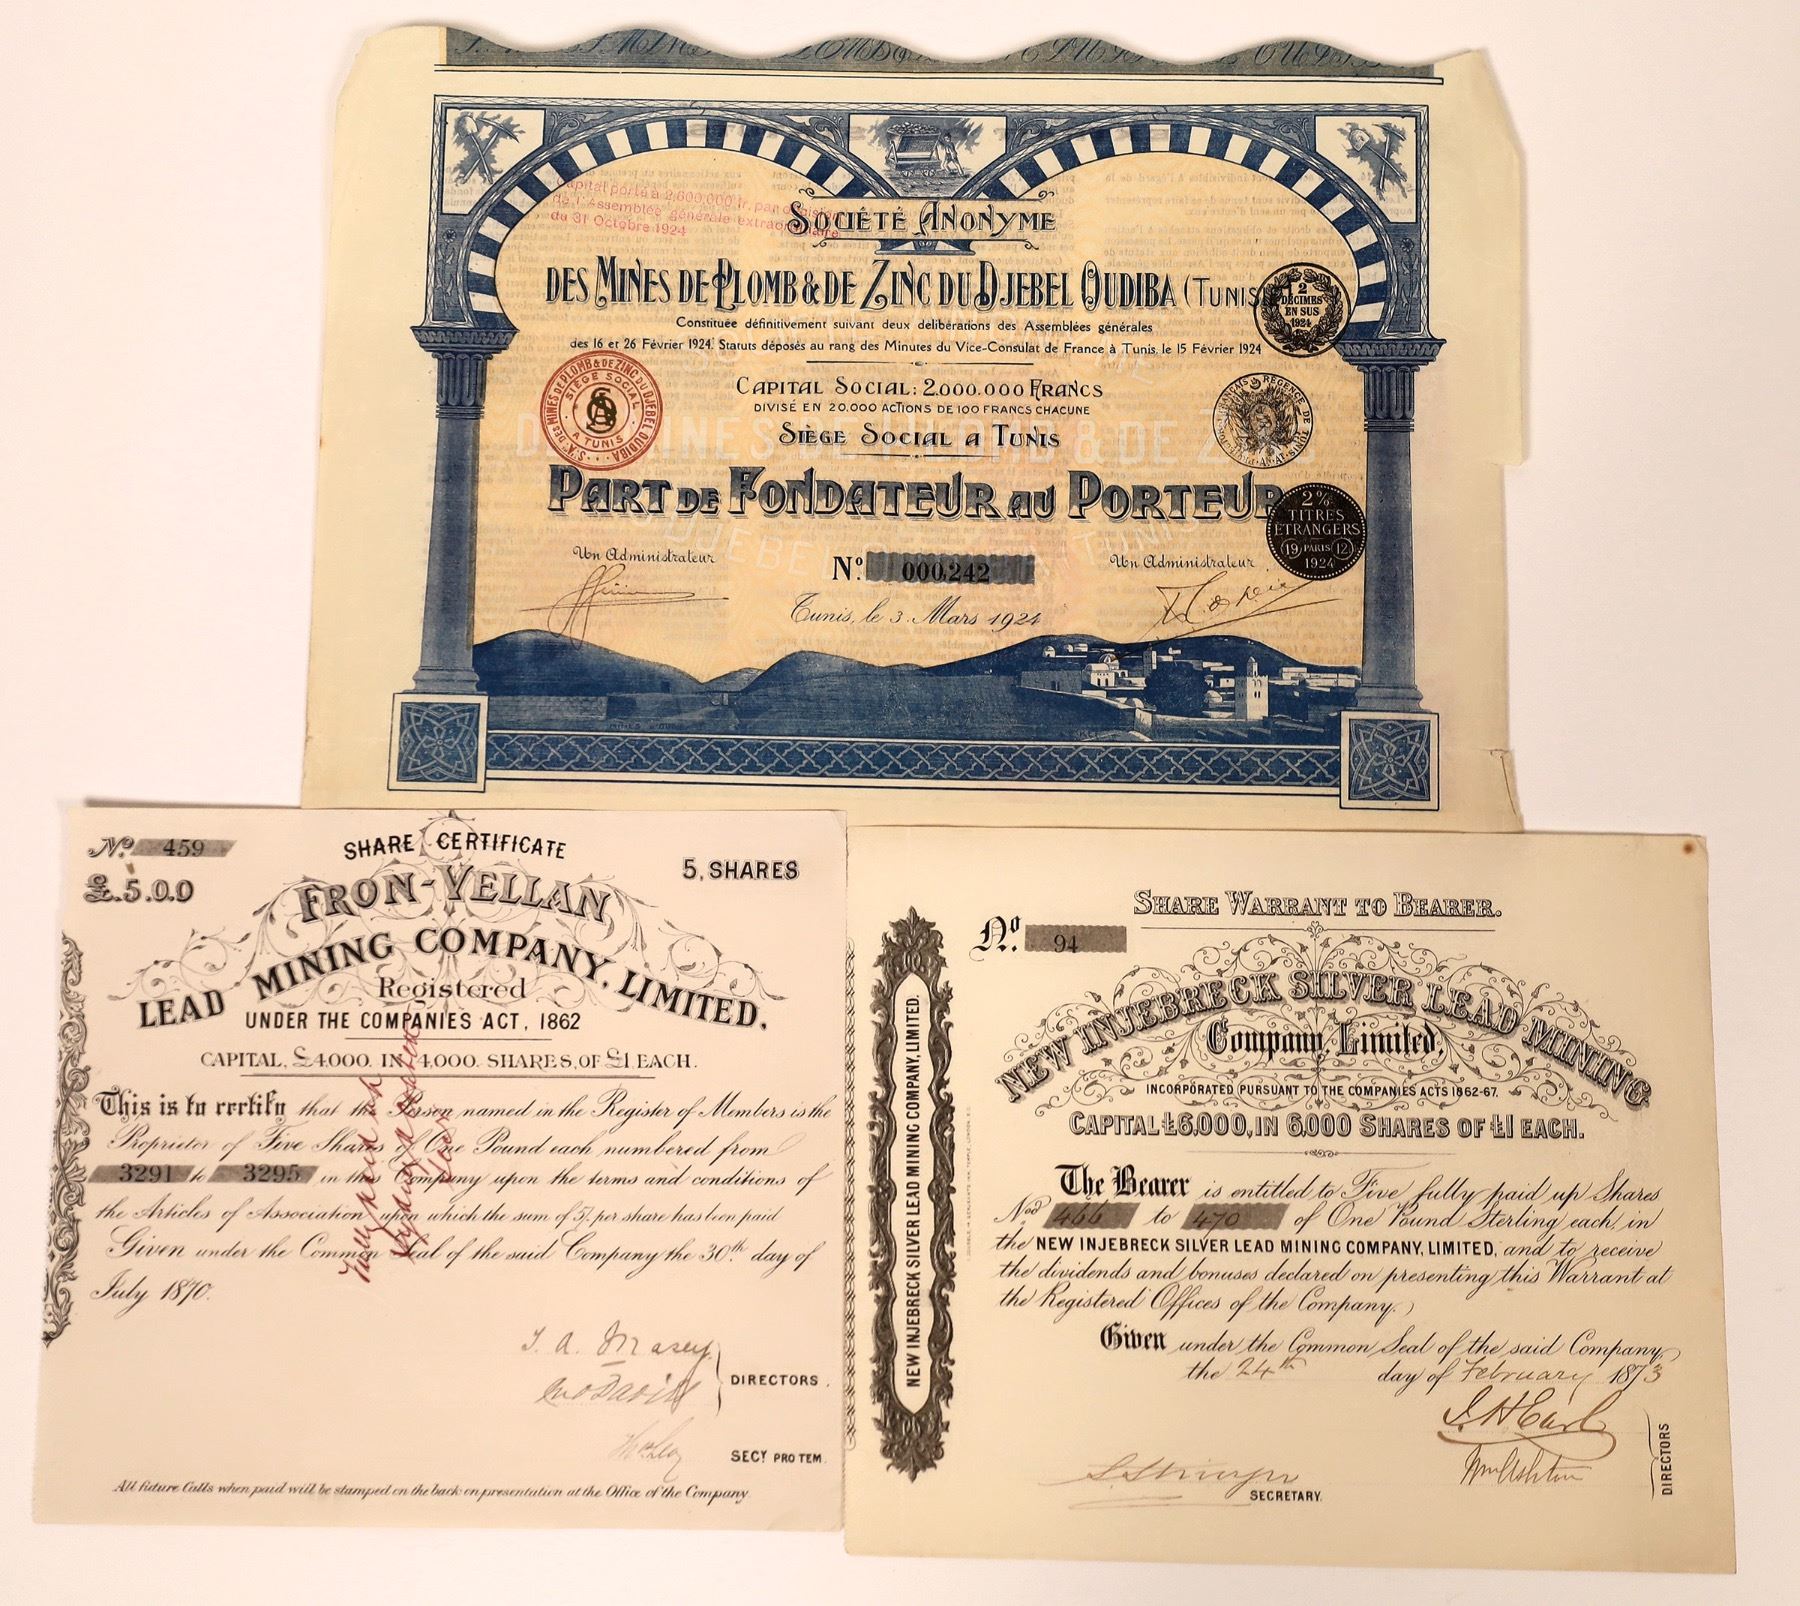 Capital porté à 2,600,000 fr. par décision
de l'Assemblée générale extraordinaire
du 31 Octobre 1924
SOCIÉTÉ ANONYME
DES MINES DE PLOMB & DE ZINC DU DJEBEL OUDIBA (TUNIS
Constituée définitivement suivant deux délibérations des Assemblées générales
des 16 et 26 Février 1924. Statuts déposés au rang des Minutes du Vice-Consulat de France à Tunis, le 15 Février 1924
2
DECIMES
EN SUS
1924
STÉ DES MINES DE PLOMB & DE ZINC DU DJEBEL OUDIBA
SIÈGE SOCIAL
A TUNIS
CAPITAL SOCIAL: 2.000.000 FRANCS
DIVISÉ EN 20.000 ACTIONS DE 100 FRANCS CHACUNE
SIÈGE SOCIAL A TUNIS
PART DE FONDATEUR AU PORTEUR
2%
TITRES
ETRANGERS
19 PARIS 12
1924
Un Administrateur
No. 000,242
Un Administrateur
Tunis, le 3 Mars 1924
No. 459
SHARE CERTIFICATE
£.5.0.0
5, SHARES
FRON-VELLAN
LEAD MINING COMPANY, LIMITED.
Registered
UNDER THE COMPANIES ACT, 1862
CAPITAL, £4000. IN 4,000. SHARES, OF £1 EACH.
This is to certify that the Person named in the Register of Members is the
Proprietor of Five Shares of One Pound each numbered from
3291 to 3295 in this Company upon the terms and conditions of
the Articles of Association upon which the sum of 5/- per share has been paid
Given under the Common Seal of the said Company the 30th day of
July 1870.
T. A. Masey
DIRECTORS.
SECY PRO TEM.
All future Calls when paid will be stamped on the back on presentation at the Office of the Company.
SHARE WARRANT TO BEARER.
No. 94
NEW INJEBRECK SILVER LEAD MINING
Company, Limited,
INCORPORATED PURSUANT TO THE COMPANIES ACTS 1862-67.
CAPITAL £6,000, IN 6,000 SHARES OF £1 EACH.
NEW INJEBRECK SILVER LEAD MINING COMPANY, LIMITED.
The Bearer is entitled to Five fully paid up Shares
Nos 466 to 470 of One Pound Sterling each, in
the NEW INJEBRECK SILVER LEAD MINING COMPANY, LIMITED, and to receive
the dividends and bonuses declared on presenting this Warrant at
the Registered Offices of the Company.
Given under the Common Seal of the said Company,
the 24th day of February 1873
J. H. Earl
Wm Ashton
DIRECTORS
SECRETARY.